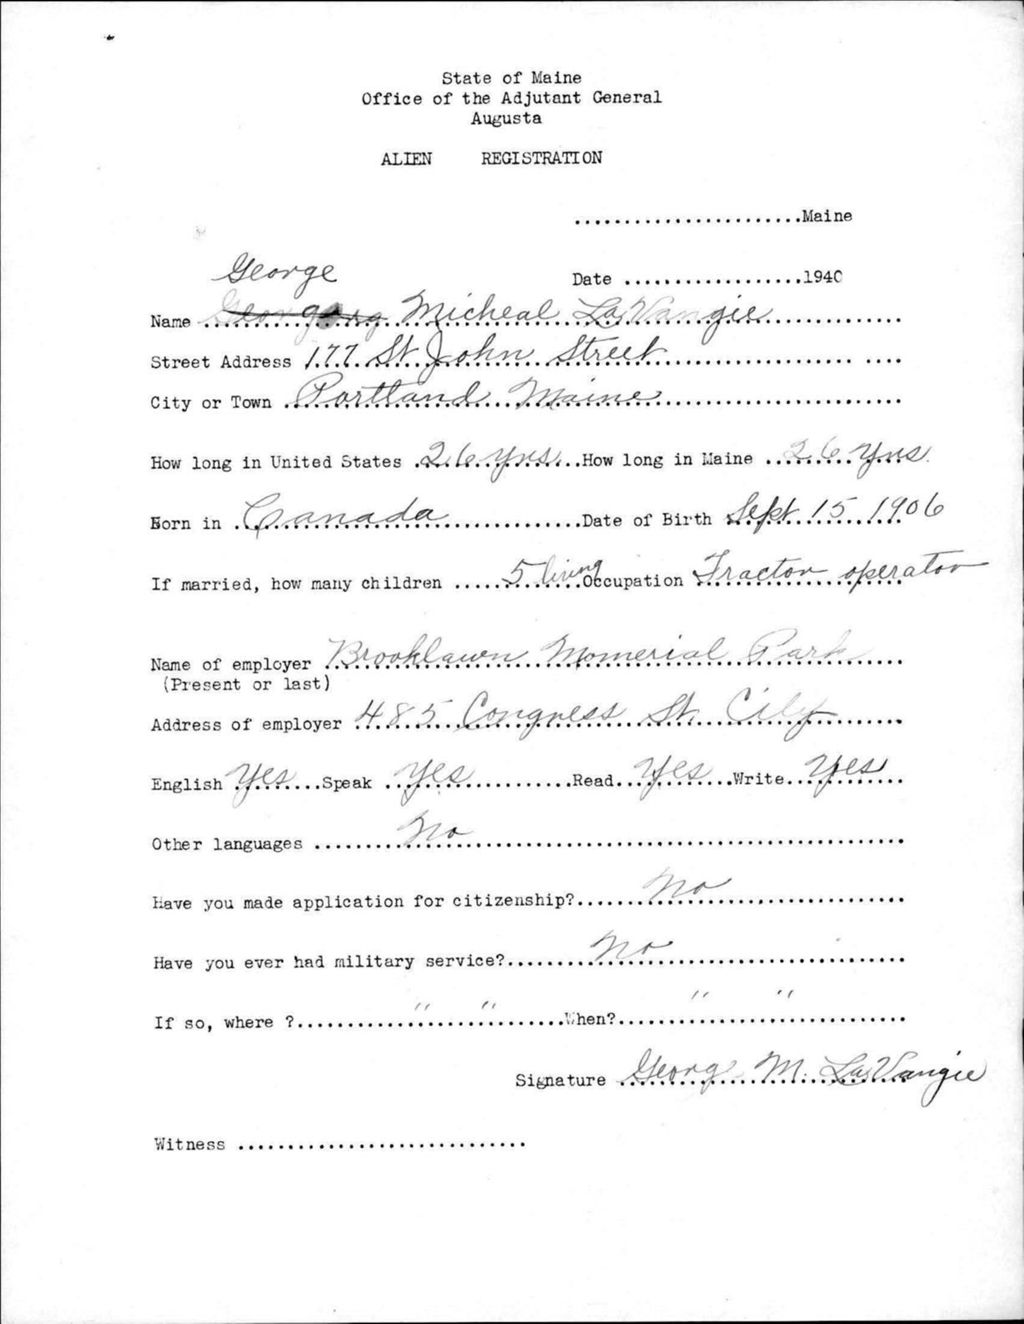 State of Maine
Office of the Adjutant General
Augusta
ALIEN REGISTRATION
.......................Maine
George
Date ..................1940
Name .. Micheal LaVangie
Street Address 177 St. John Street
City or Town Portland Maine
How long in United States 26 yrs. How long in Maine 26 yrs.
Born in Canada Date of Birth Sept 15 1906
If married, how many children 5 living Occupation Tractor operator
Name of employer Brooklawn Momerial Park
(Present or last)
Address of employer 485 Congress St. City
English Yes Speak Yes Read Yes Write Yes
Other languages No
Have you made application for citizenship? No
Have you ever had military service? No
If so, where ? " " When? " "
Signature George M. LaVangie
Witness .............................